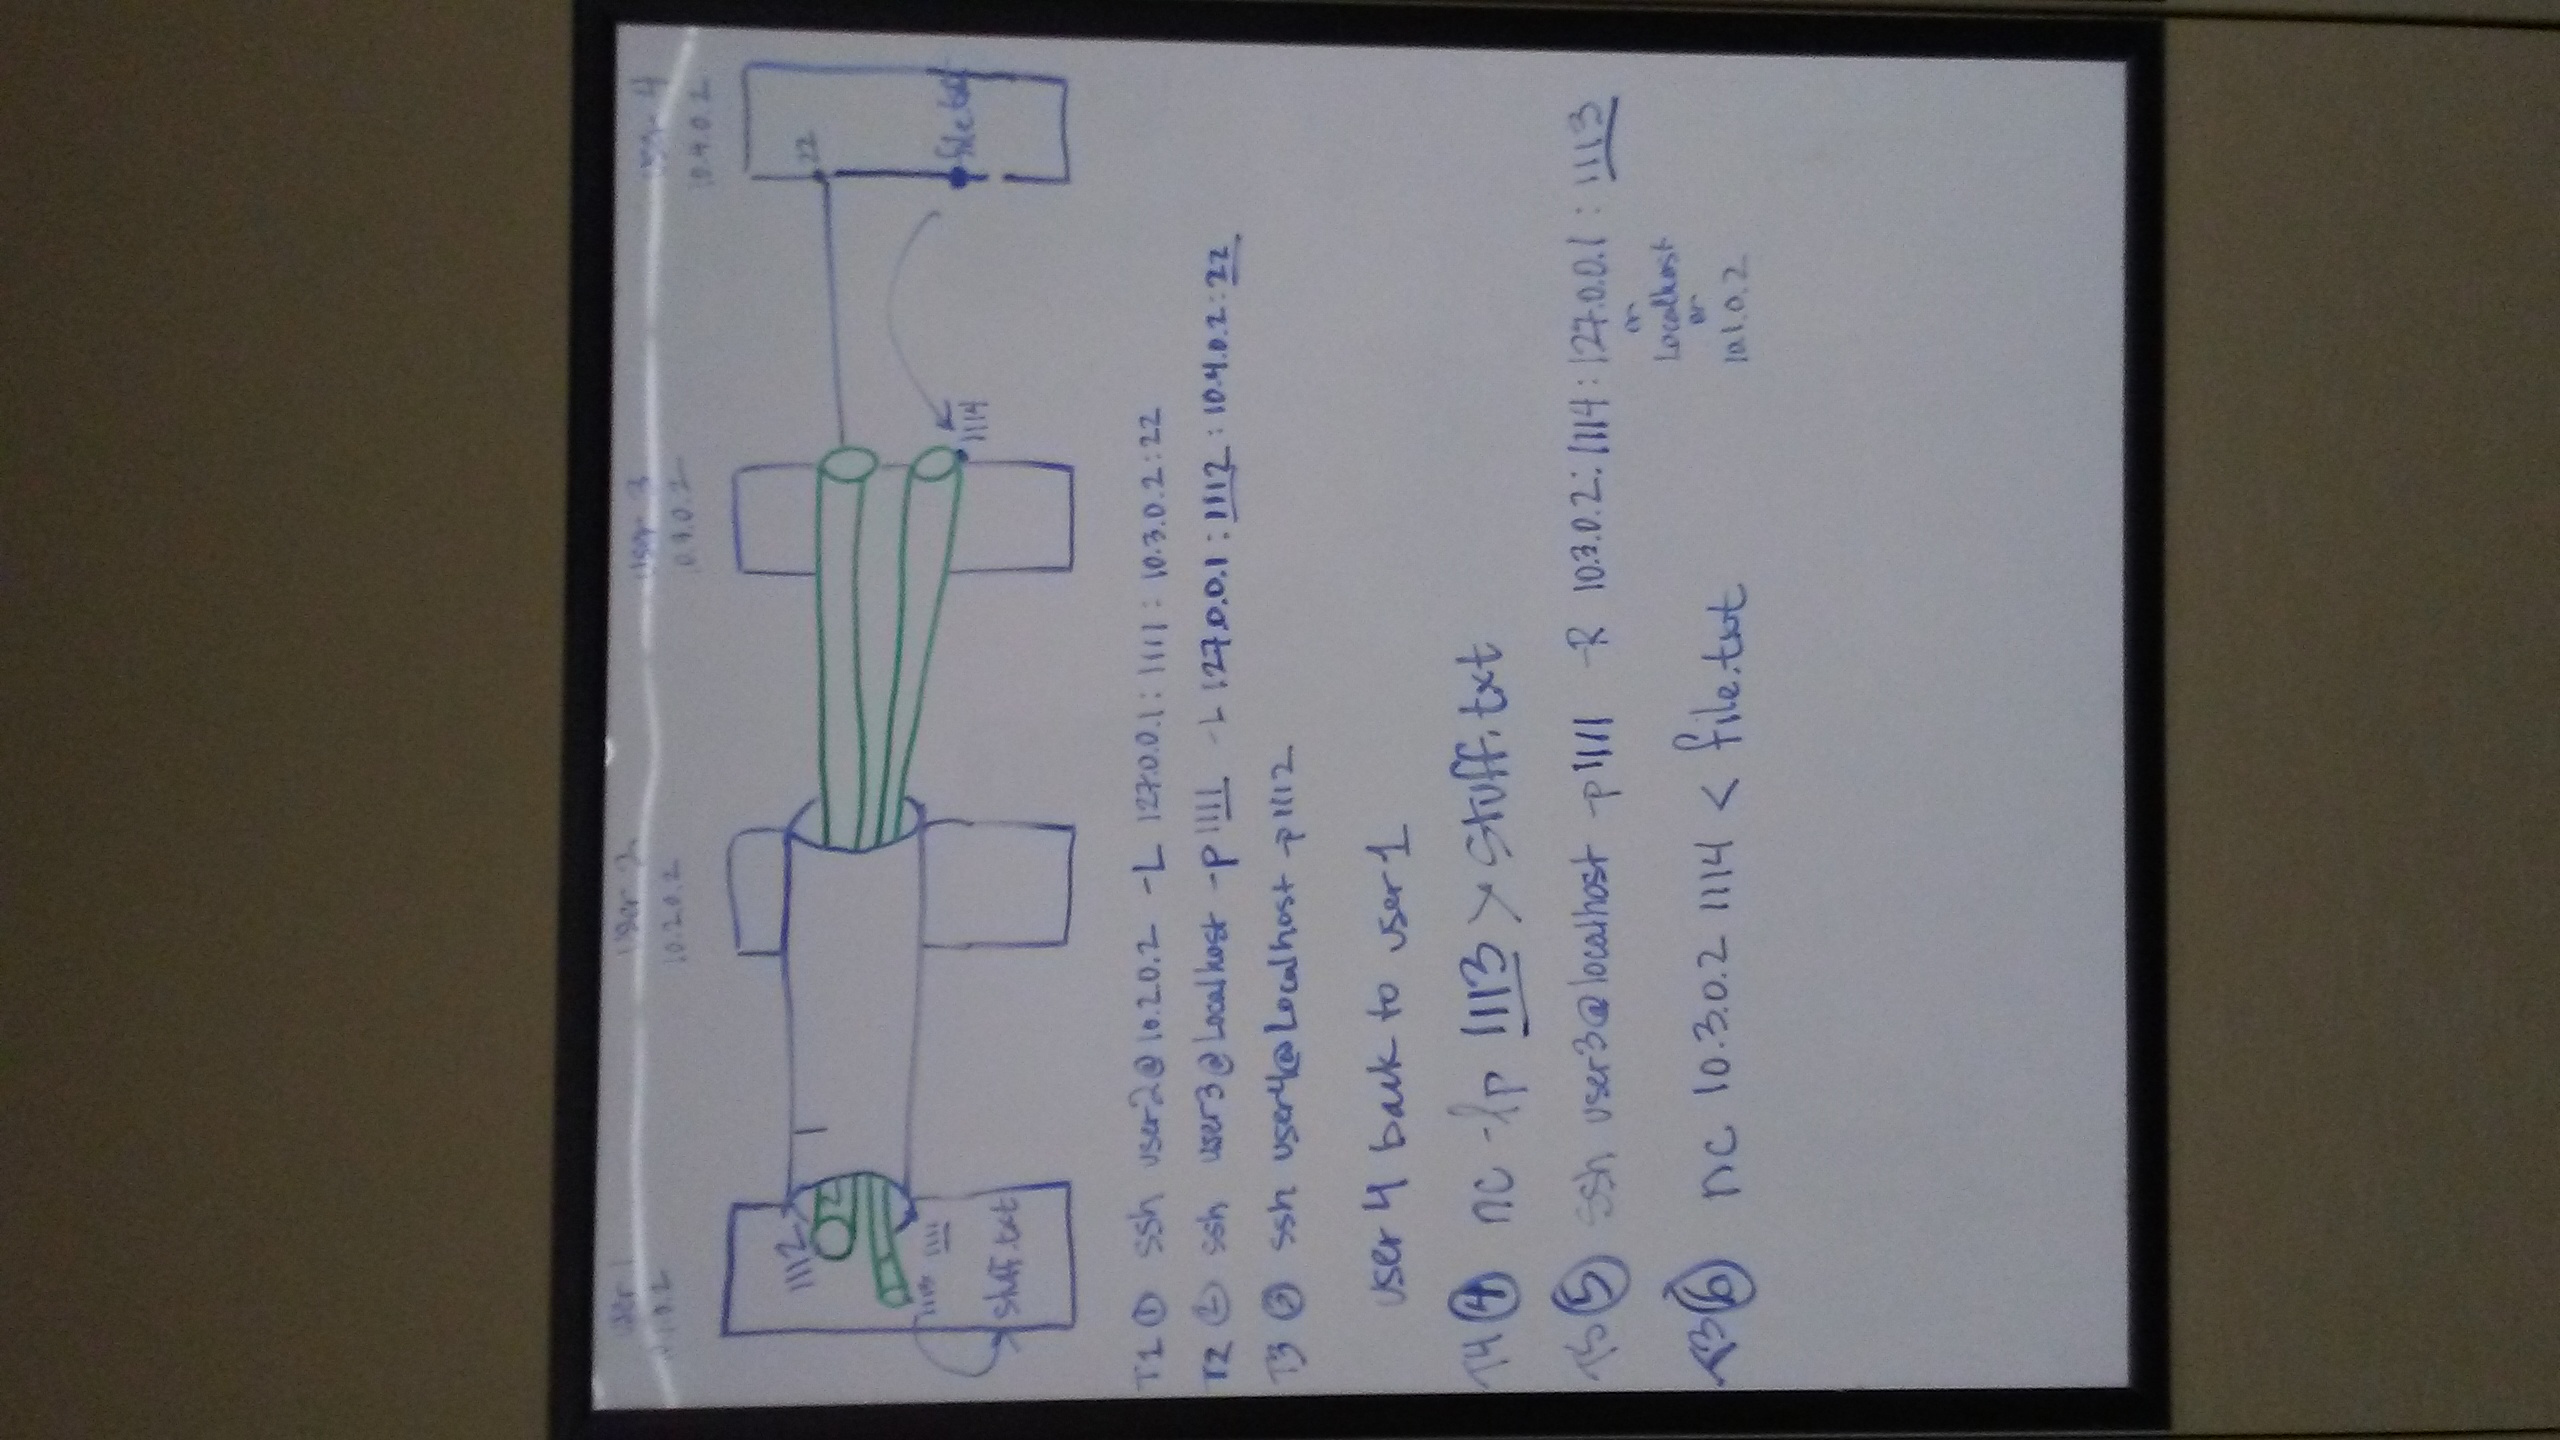 user 1 user 2 user 3 user 4
.1.0.2 10.2.0.2 10.3.0.2 10.4.0.2
1112 1 22
2
1113 1111 1114 file.txt
stuff.txt
T1 ① ssh user2@10.2.0.2 -L 127.0.0.1:1111:10.3.0.2:22
T2 ② ssh user3@Localhost -p 1111 -L 127.0.0.1:1112:10.4.0.2:22
T3 ③ ssh user4@Localhost -p 1112
user 4 back to user 1
T4 ④ nc -lp 1113 > stuff.txt
T5 ⑤ ssh user3@localhost -p 1111 -R 10.3.0.2:1114:127.0.0.1:1113
or
Localhost
or
10.1.0.2
T3 ⑥ nc 10.3.0.2 1114 < file.txt